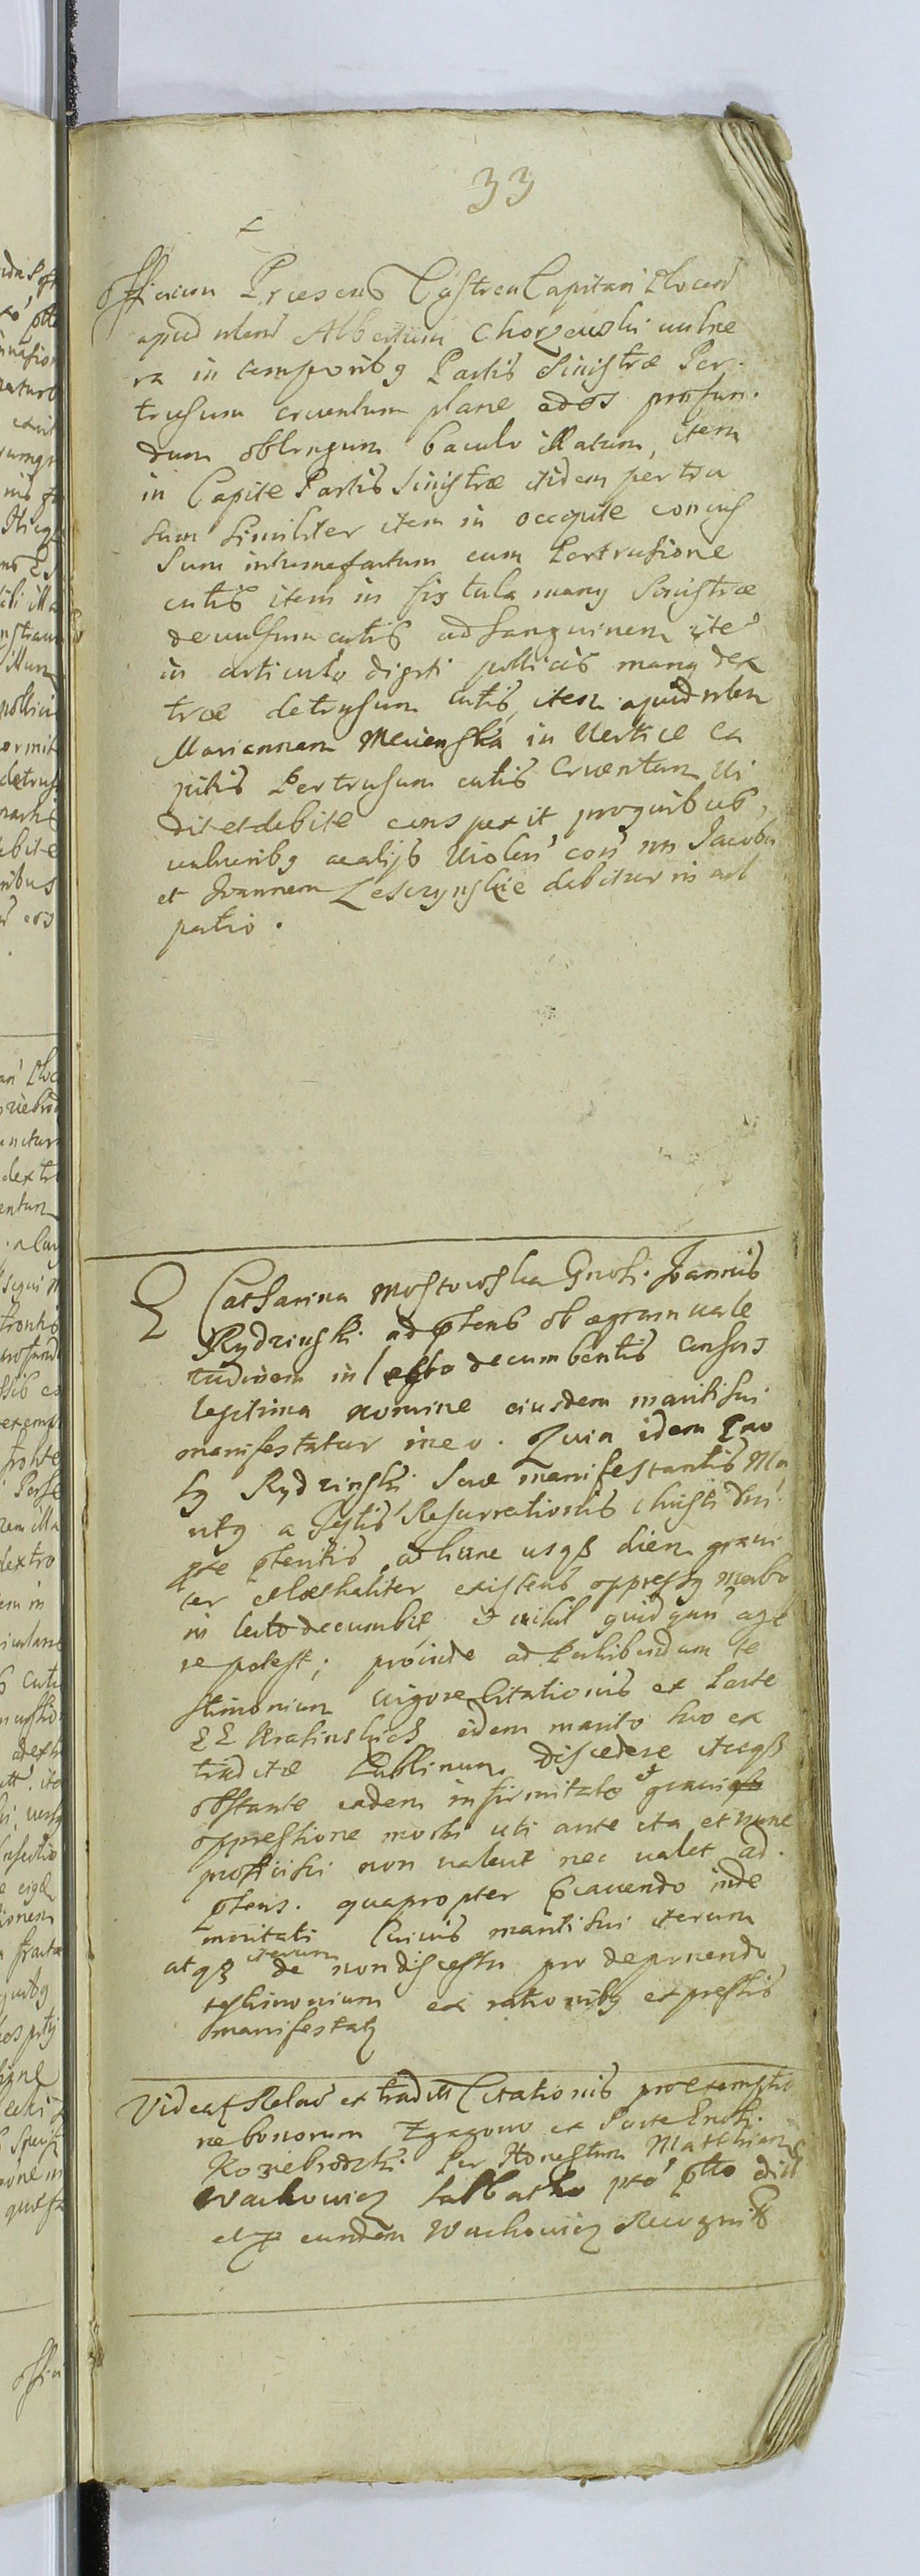 33
Officium Præsens Castren Capitan Plocen
apud nlem Albertum Chorzewski vulne
ra in temporibg Partis Sinistræ Per-
trusum cruentum plane ad os profun-
dum oblongum baculo illatum, item
in Capite Partis Sinistræ itidem pertru
sum Similiter item in occipite concus
Sum intumefactum cum Pertrusione
cutis item in fistula mang Sinistræ
devulsum cutis ad Sanguinem ite
in articulo digiti pollicis mang dex
træ detrusum cutis, item apud nlem
Mariannam in Vertice ca
pitis Pertrusum cutis Cruentum Vi
dit et debite conspexit pro quibus,
vulneribg ac alijs Violen con nn Jacobu
et Joannem Lesczynskie debitur in act
patio.
Catharina Mostowska Gnosi. Joannis
Rydzinski ad ptens ob ægram vale
tudinem in lecto decumbentis consors
legitima nomine eiusdem mariti sui
manifestatur in eo. Quia idem Gno
sg Rydzinski Suæ manifestantis Ma
ritg a festis Resurrectionis Christi dni
pteritis, ad hunc usq dien gravi
ter et læthaliter existens oppressg morbo
in lecto decumbit, et nihil quidquam age
re potest; proinde ad perhibendum te
stimonium vigore Citationis ex Parte
eidem marito suo ex
traditæ Lublinum discedere itaq
obstante eadem infirmitate et gravi
oppressione morbi uti ante ita et nunc
proficisci non valuit nec valet ad
ptens. quapropter Præcavendo inde
mnitati Cuius mariti sui iterum
atq iterum de non discessu pro deponendo
testimonium ex rationibg expressis
manifestatg
Videat Relao extradit Citationis pro exemptio
ne bonorum ex Parte Gnosi.
Koziebrodzki Per Honestum Matthiam
Wachowicz Sabbatho
et p eundem Wachowicz Recognit